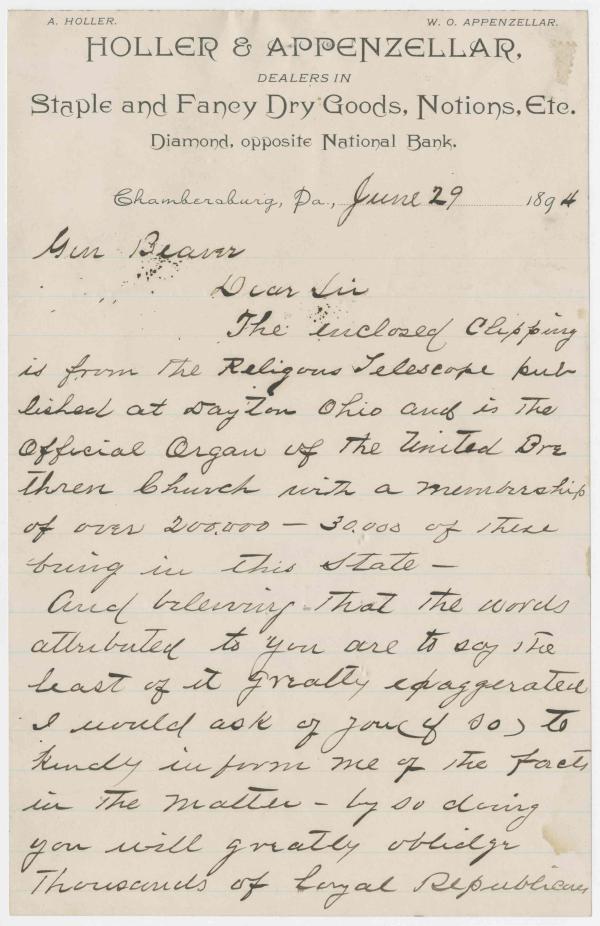 A. HOLLER. W. O. APPENZELLAR.
HOLLER & APPENZELLAR,
DEALERS IN
Staple and Fancy Dry Goods, Notions, Etc.
Diamond, opposite National Bank.
Chambersburg, Pa., June 29 1894
Gen Beaver
Dear Sir
The enclosed Clipping
is from the Religous Telescope pub
lished at Dayton Ohio and is the
Official Organ of the United Bre
thren Church with a membership
of over 200.000 — 30.000 of these
being in this State —
And beleiving that the words
attributed to you are to say the
least of it greatly exaggerated
I would ask of you (if so) to
kindly inform me of the facts
in the matter — by so doing
you will greatly oblidge
Thousands of loyal Republicans